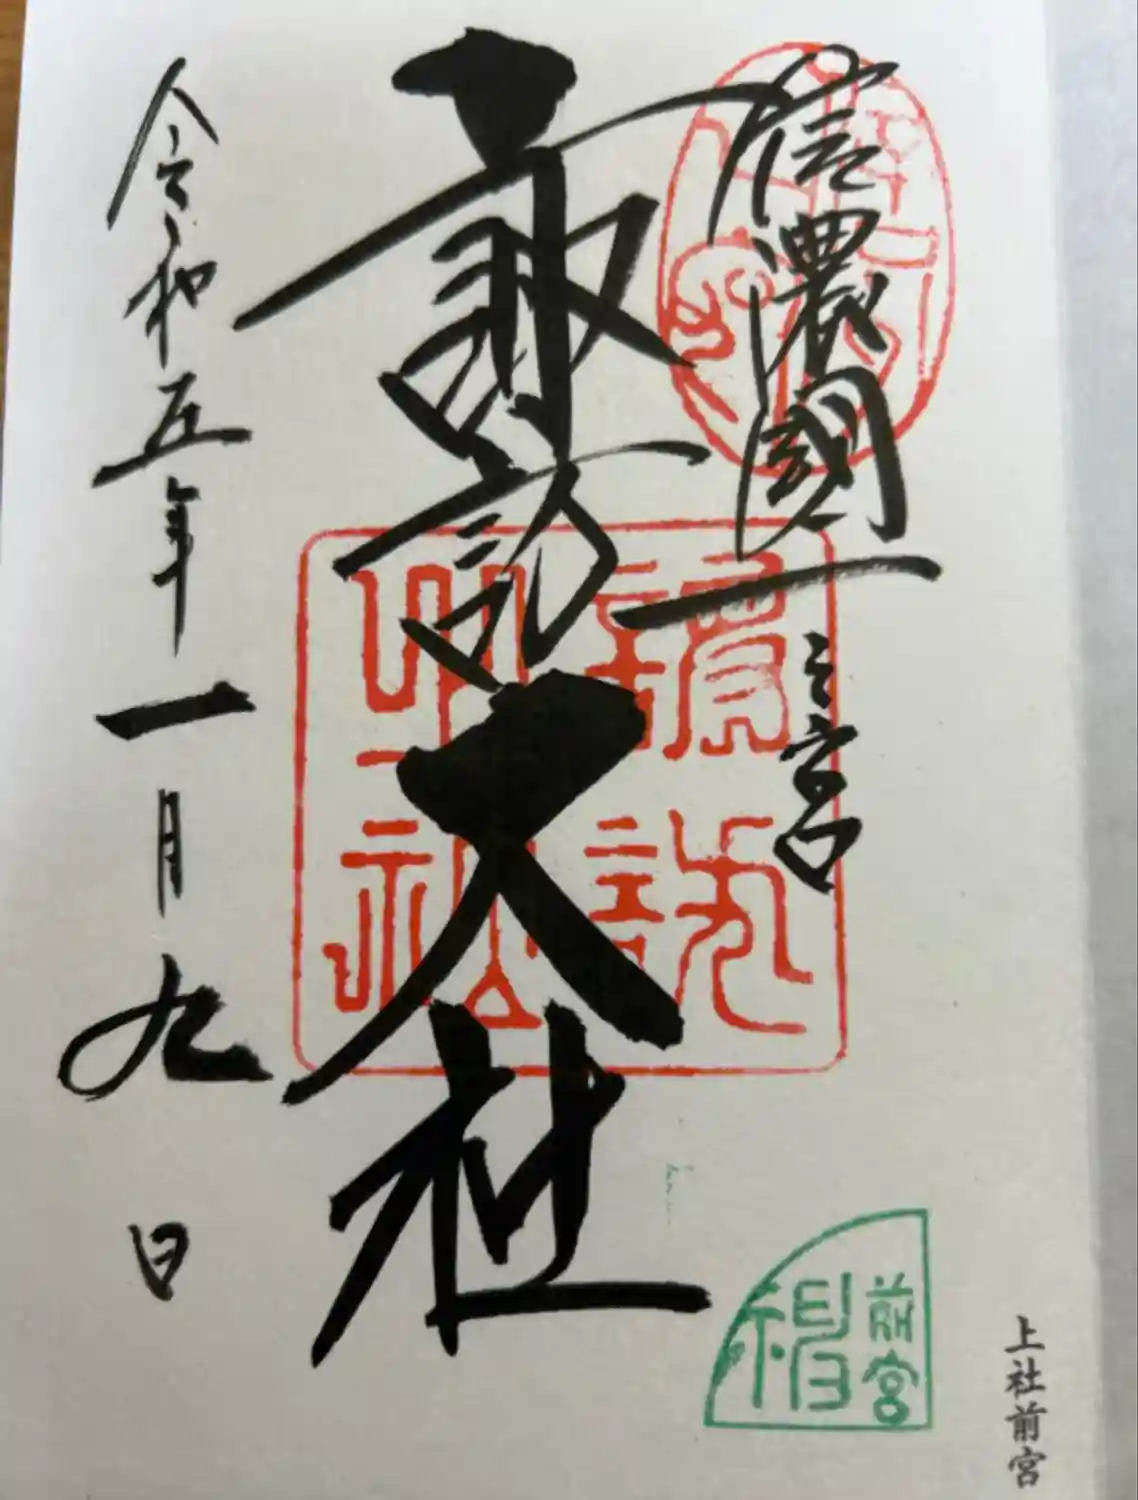 信濃國一之宮
諏訪大社
令和五年一月九日
諏訪
大社
前宮
上社前宮